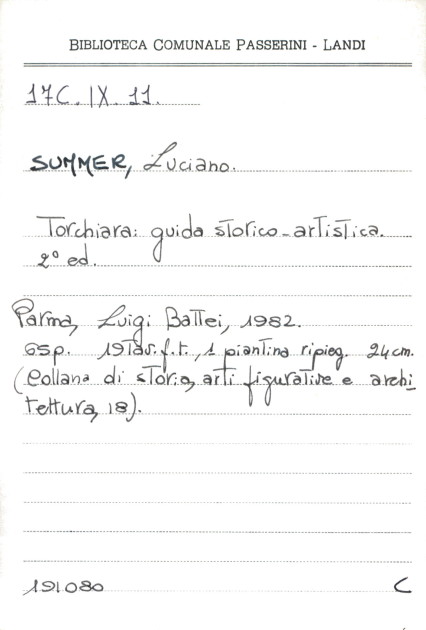 BIBLIOTECA COMUNALE PASSERINI - LANDI
17C. IX. 11.
SUMMER, Luciano.
Torchiara: guida storico-artistica.
2° ed.
Parma, Luigi Battei, 1982.
65p. 19 tav. f.t., 1 piantina ripieg. 24cm.
(Collana di storia, arti figurative e archi_
tettura, 18).
191080 C